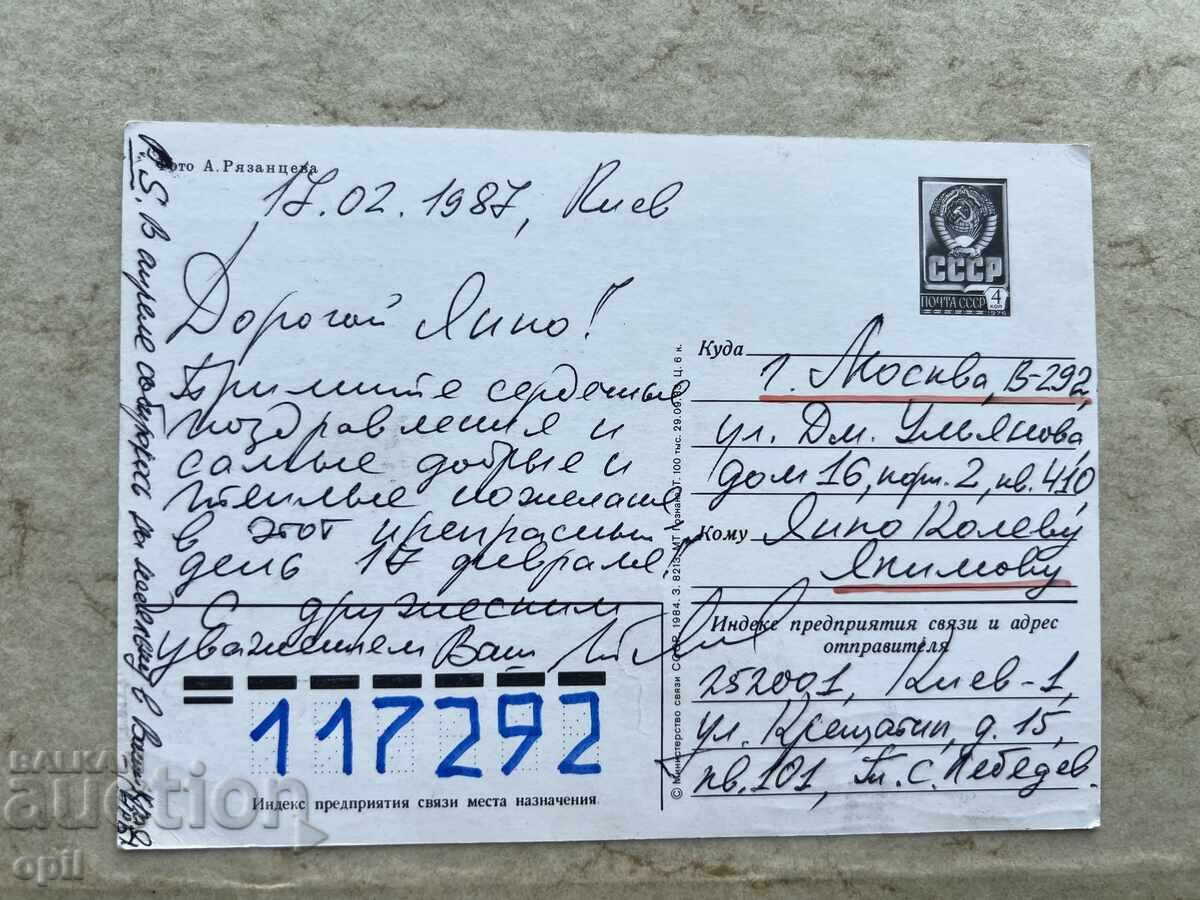 Фото А. Рязанцева
17.02.1987, Киев
Дорогой Янко!
Примите сердечные
поздравления и
самые добрые и
теплые пожелания
в этот прекрасный
день 17 февраля!
С дружеским
уважением Ваш
P.S. В апреле собираюсь на недельку в
СССР
ПОЧТА СССР 4 КОП
1976
Куда
г. Москва, В-292,
ул. Дм. Ульянова,
дом 16, корп. 2, кв. 410
Кому Янко Колеву
Якимову
Индекс предприятия связи и адрес
отправителя
252001, Киев-1,
ул. Крещатик, д. 15,
кв. 101, Т. С. Лебедев.
117292
Индекс предприятия связи места назначения
© Министерство связи СССР. 1984. З. 8213. МТ Гознака. Т. 100 тыс. 29.09. Ц. 6 к.
BALKAN
auction
opil